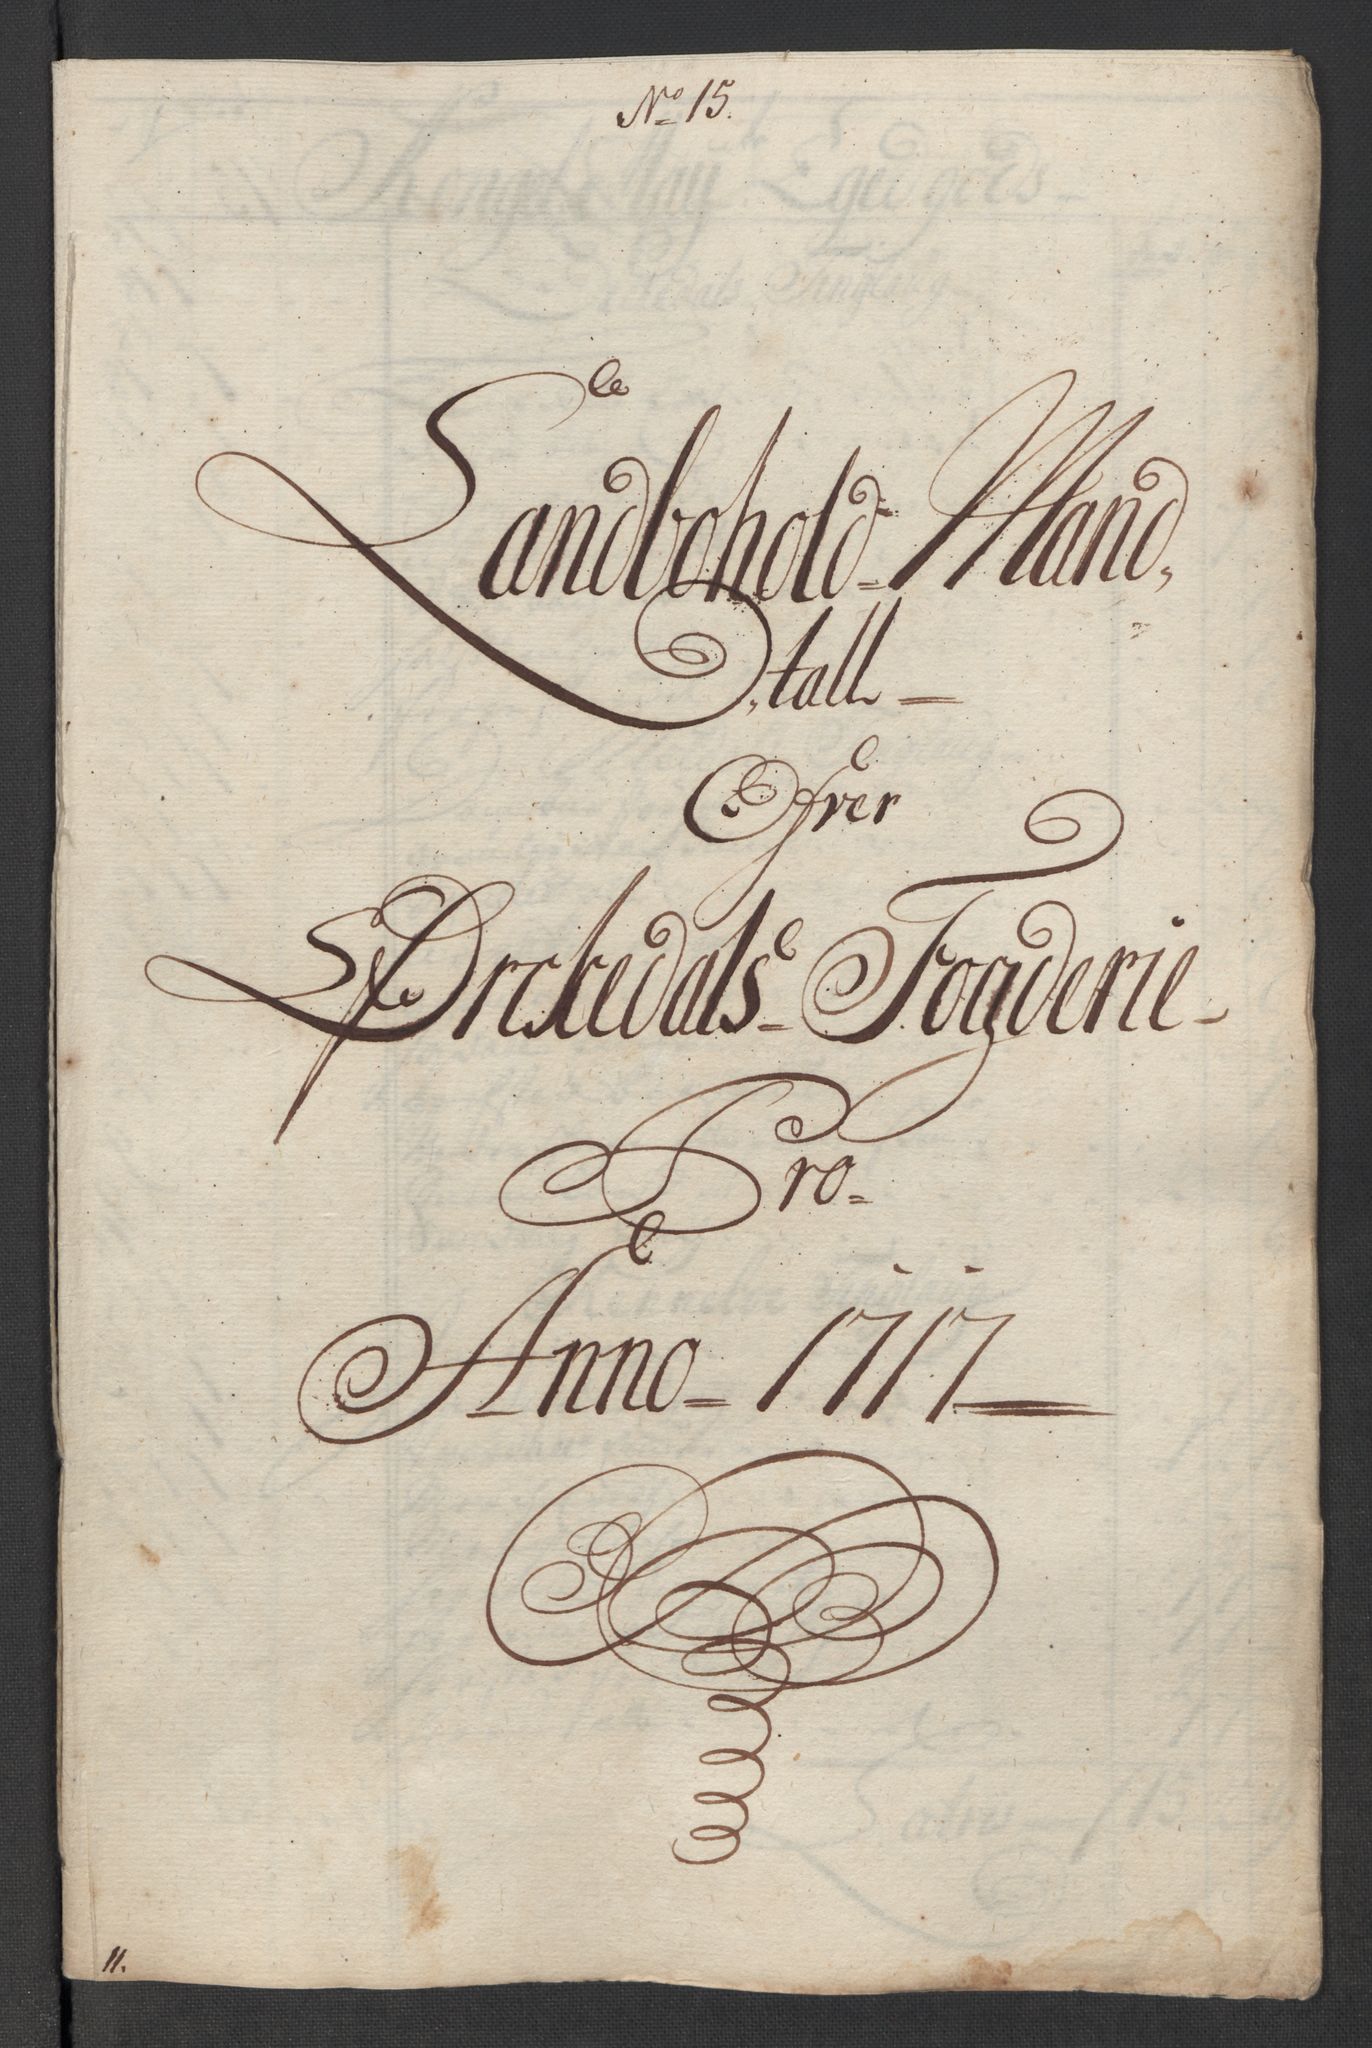 No 15.
Landbohold- Mand,
,tall
Ofver
Ørckedals- Fogderie-
Pro-
Anno- 1717
11.